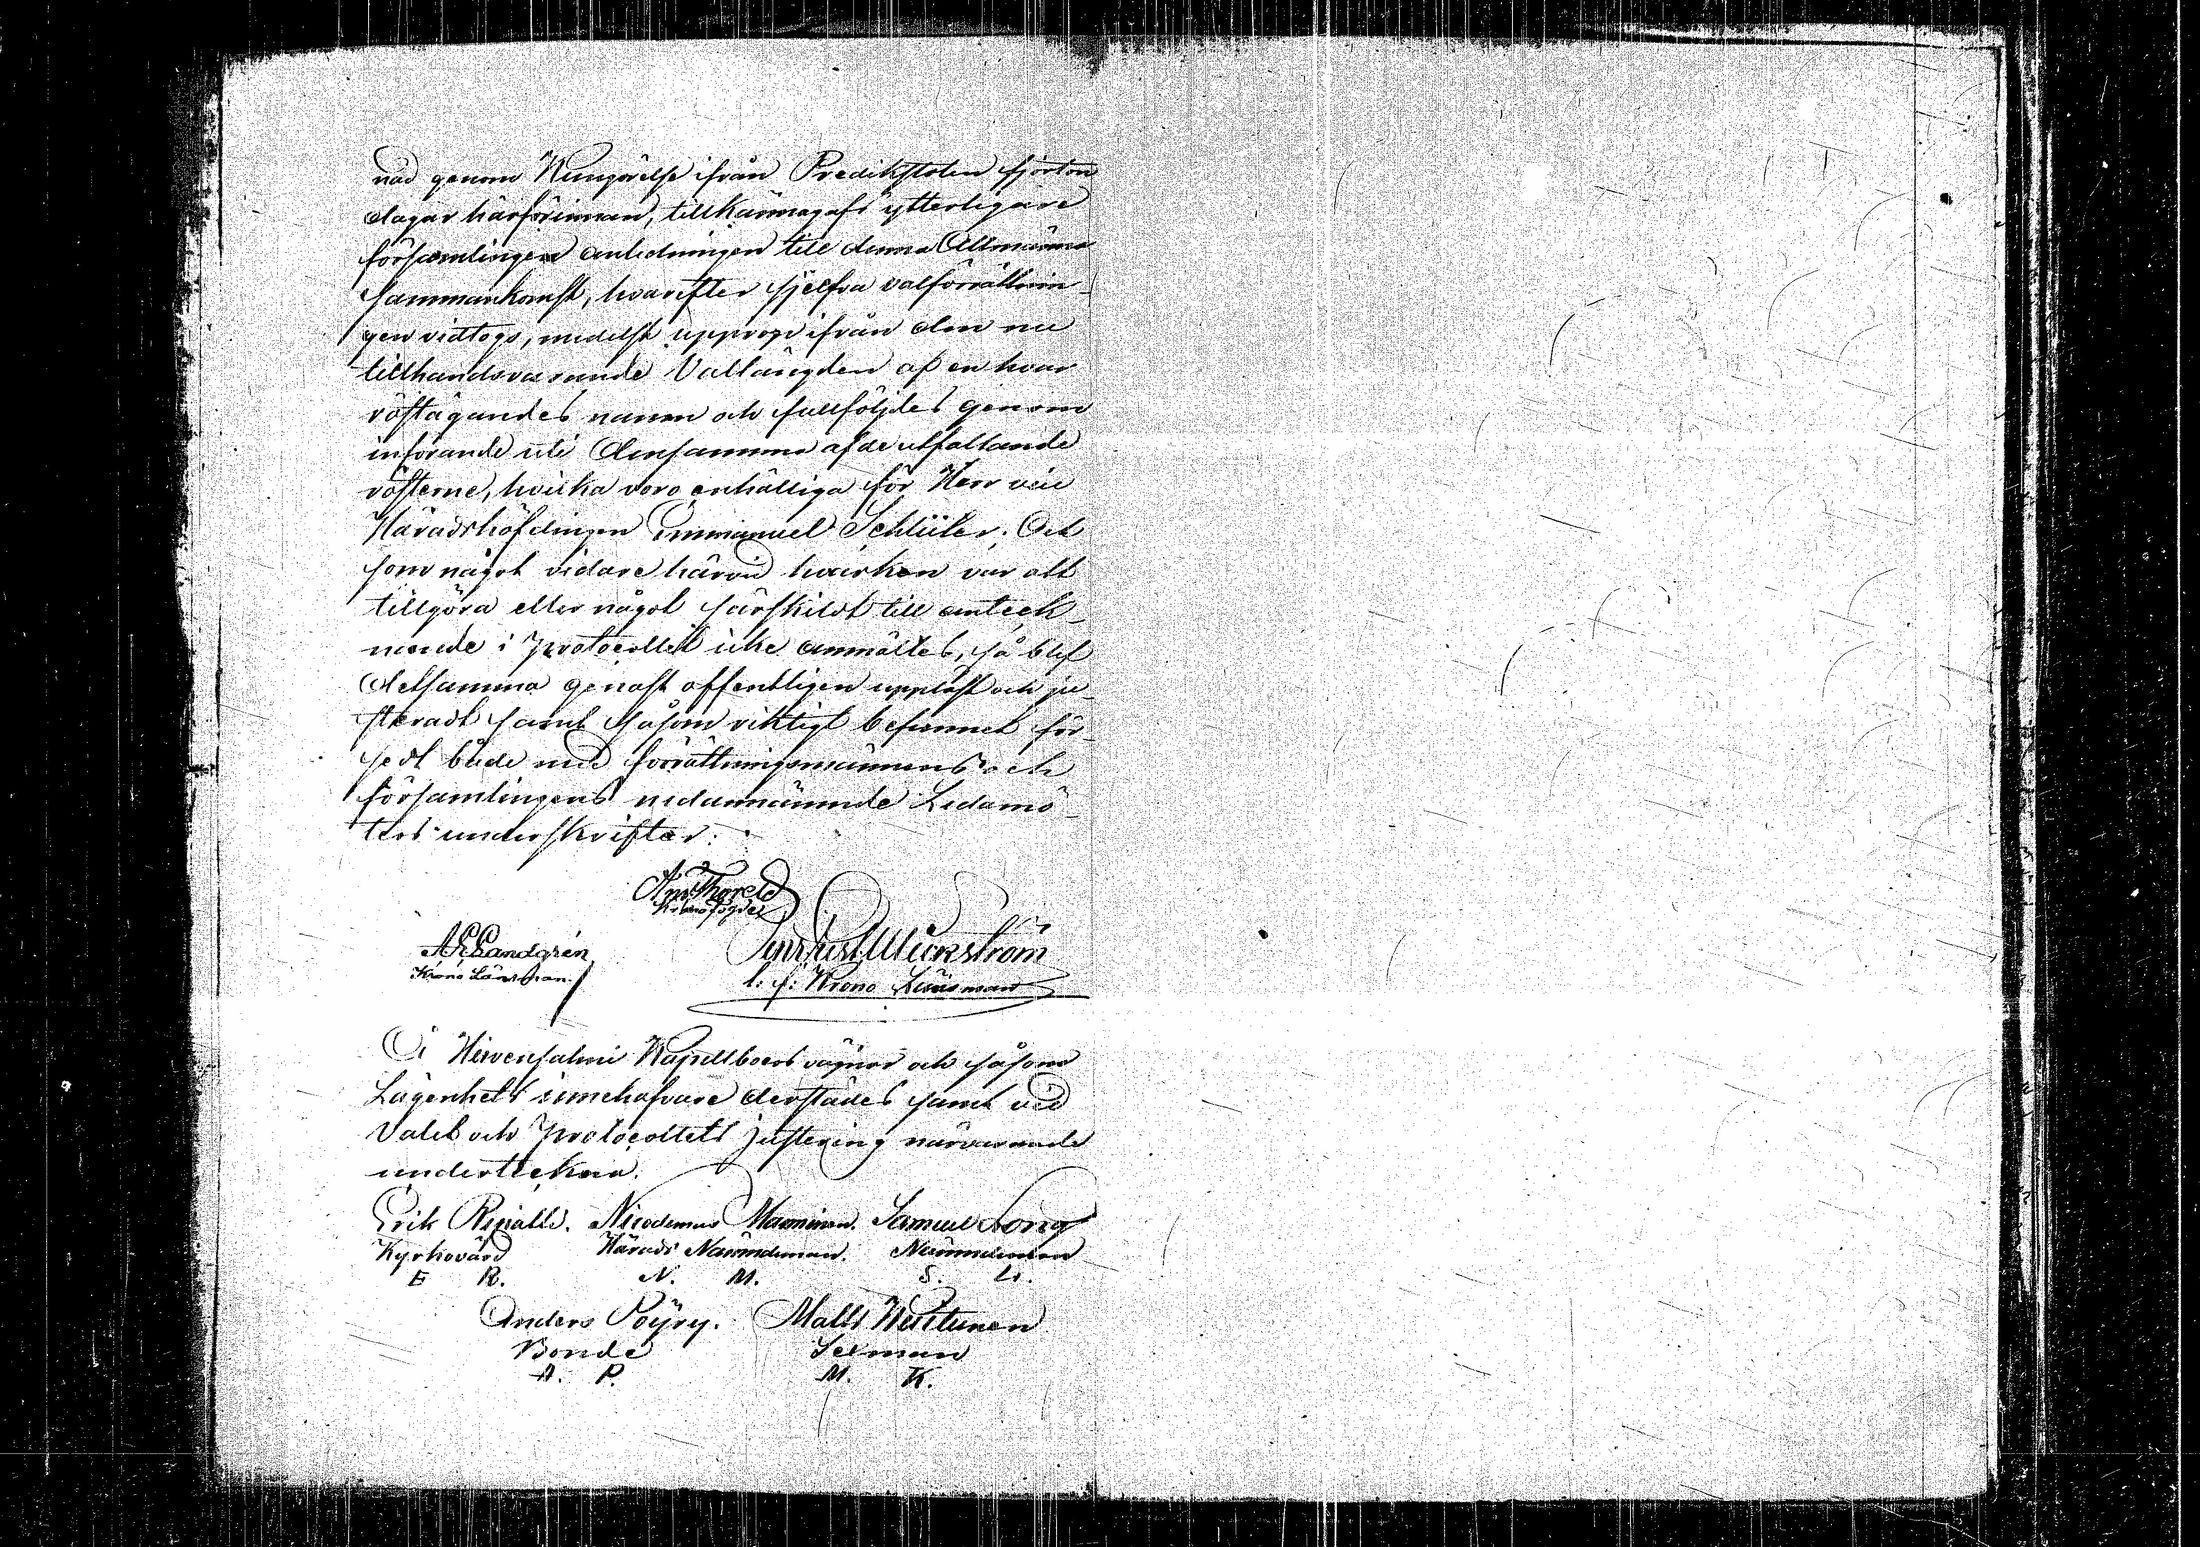 nad genom Kungörelse ifrån Predikstolen fjorton
dagar härförinnan, tillkännagafs ytterligare
församlingen anledningen till denna Allmänna
sammankomst, hvarefter sjelfva valförrättnin-
gen vidtogs, medelst upprop ifrån den nu
tillhandsvarande Vallängden af en hvar
röstägandes namn och fullföljdes genom
införande uti densamma af de utfallande
rösterne, hvilka voro enhälliga för Herr vice
Häradshöfdingen Emmanuel Schlüter. Och
som något vidare härvid hvarken var att
tillgöra eller något särskildt till anteck-
nande i Protocollet icke anmältes, så blef
detsamma genast offentligen uppläst och ju-
steradt samt såsom riktigt befunnet för-
sedt både med förrättningsmännens och
församlingens nedannämnde Ledamö-
ters underskrifter.
Thoreld
Kronofogde
A E Sandgrén
Krono Länsman.
t. f. Krono Länsman
Å Hirvensalmi Kapellboers vägnar och såsom
Lägenhets innehafvare derstädes samt vid
Valet och Protocollets justering närvarande
underteckna.
Erik Ripatti. Nicodemus Manninen. Samuel Long
Kyrkovärd Härads Nämndeman. Nämndeman
E R. N. M. S. L.
Anders Pöyry. Matts Kuitunen
Bonde Sexman
A. P. M. K.